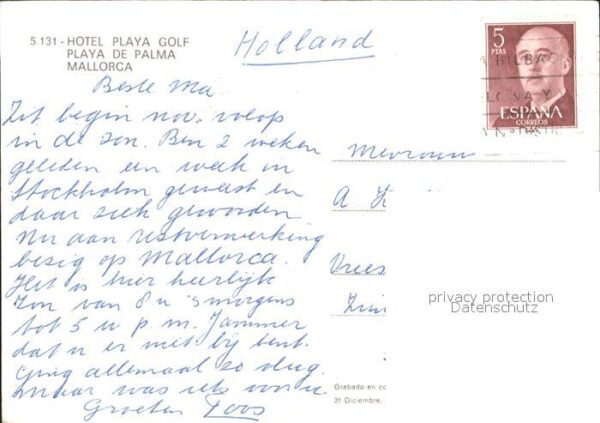 5.131 - HOTEL PLAYA GOLF
PLAYA DE PALMA
MALLORCA
Holland
5
PTAS
BILBAO
ESPAÑA
CORREOS
Beste Ma
Zit begin nov. volop
in de zon. Ben 2 weken
geleden een week in
Stockholm geweest en
daar ziek geworden
Nu aan restverwerking
bezig op Mallorca.
Het is hier heerlijk
Zon van 8 u 's morgens
tot 5 u p.m. Jammer
dat u er niet bij bent.
Ging allemaal zo vlug.
maar was iets voor u
Groeten Toos
Mevrouw
A.
Vrees
privacy protection
Datenschutz
Grabado en co
31 Diciembre,